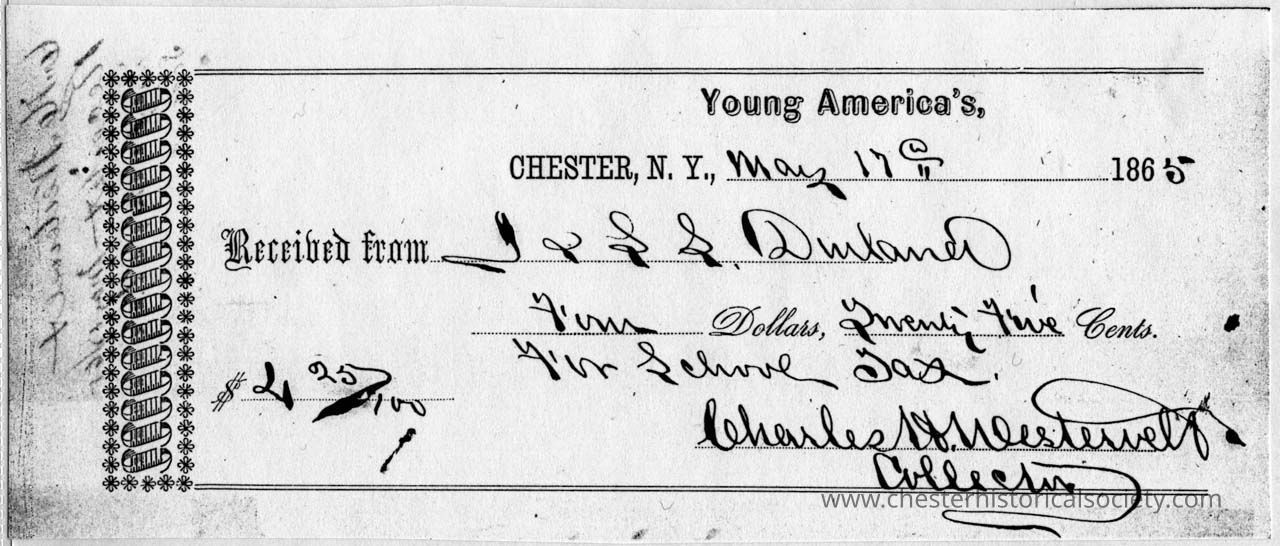 Young America's,
CHESTER, N. Y., May 17th 1865
Received from J & L L. Durland
Four Dollars, Twenty Five Cents.
For School Tax.
$ 4 25/100
Charles H. Westervelt
Collector
www.chesterhistoricalsociety.com